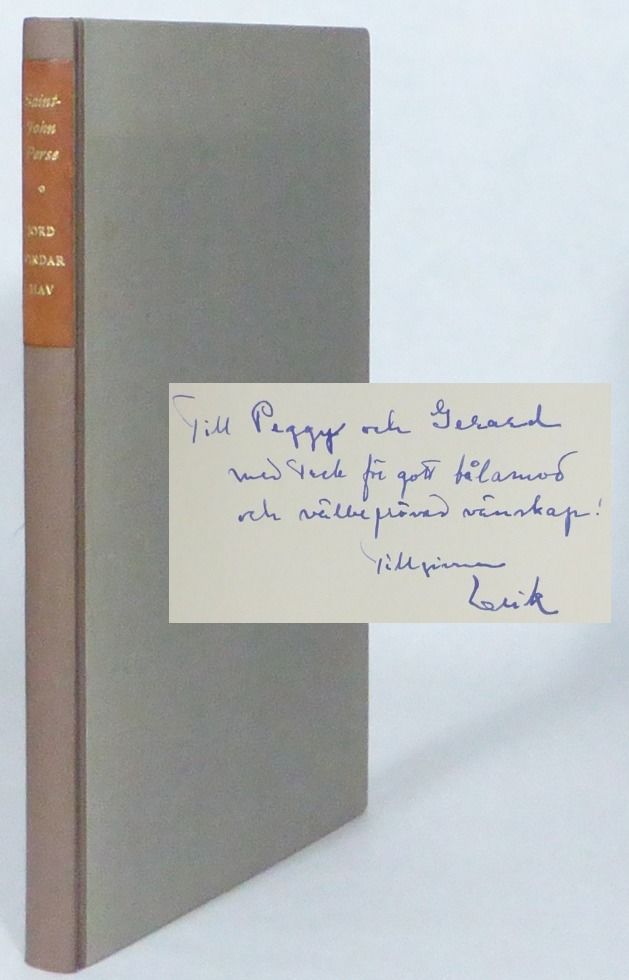 Saint-
John
Perse
JORD
VINDAR
HAV
Till Peggy och Gerard
med tack för gott tålamod
och välbeprövad vänskap!
Tillgivne
Erik